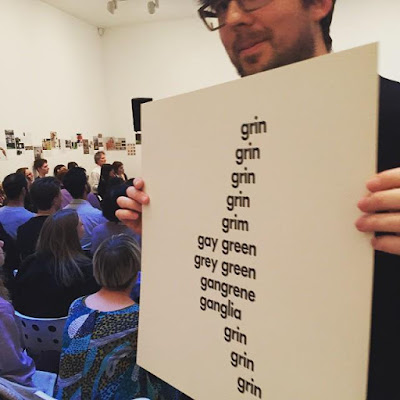 grin
grin
grin
grin
grim
gay green
grey green
gangrene
ganglia
grin
grin
grin